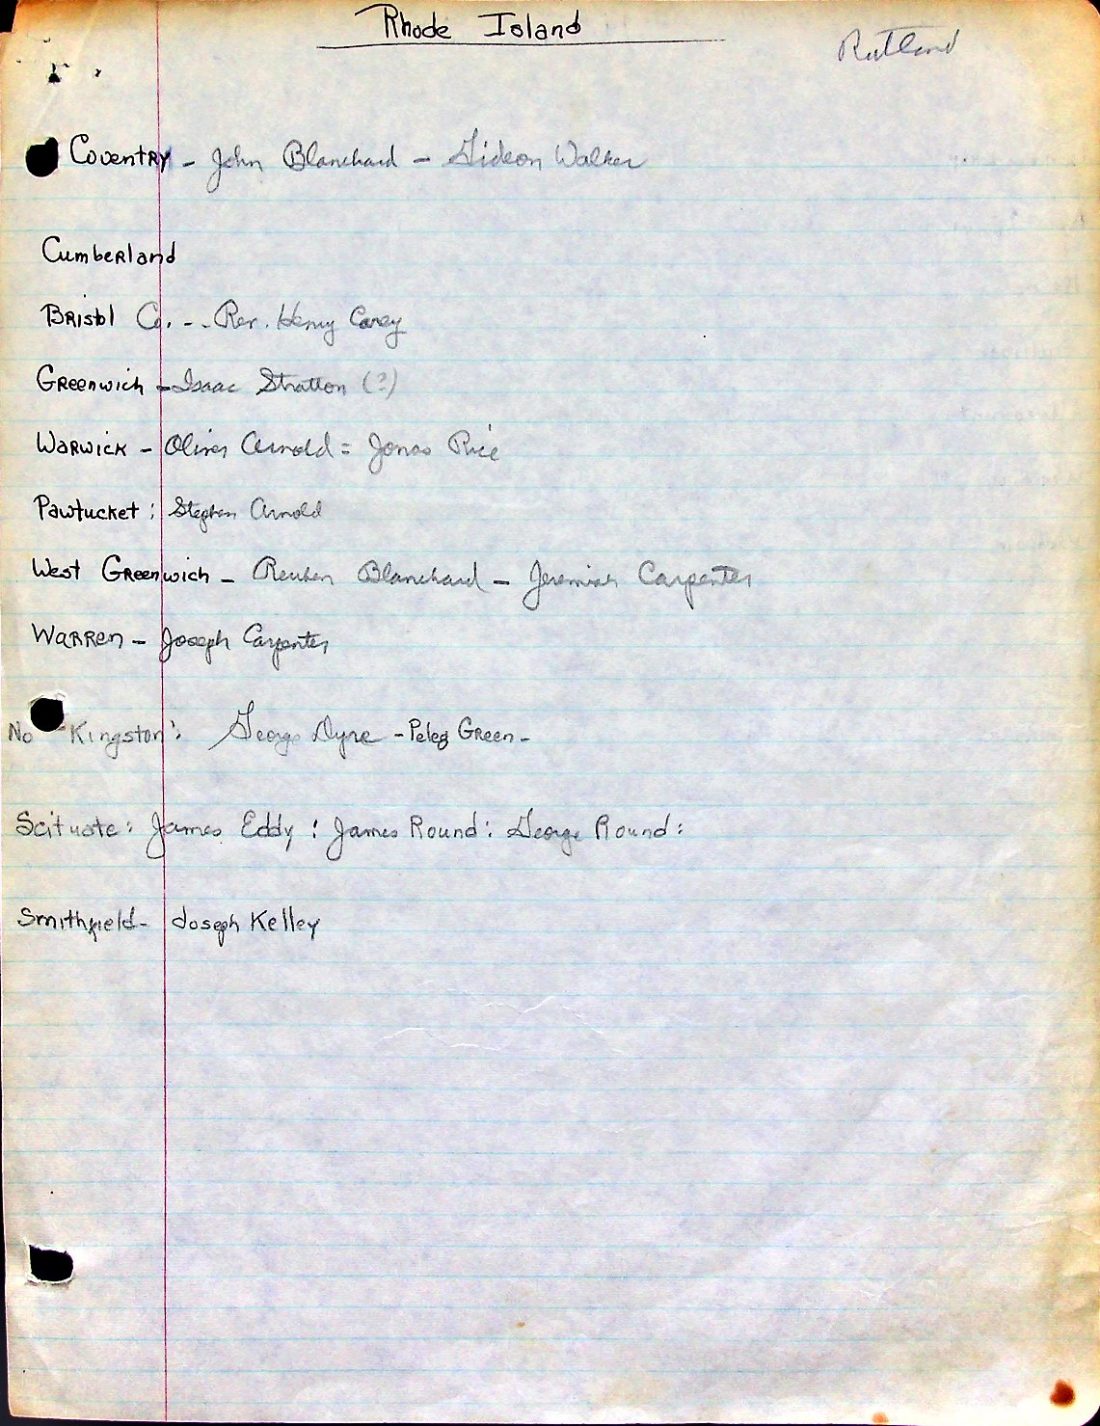 Rhode Island
Rutland
Coventry - John Blanchard - Gideon Walker
Cumberland
Bristol Co. - - Rev. Henry Carey
Greenwich - Isaac Stratton (?)
Warwick - Oliver Arnold = Jonas Rice
Pawtucket : Stephen Arnold
West Greenwich - Reuben Blanchard - Jeremiah Carpenter
Warren - Joseph Carpenter
No Kingston : George Dyre - Peleg Green -
Scituate : James Eddy : James Round : George Round :
Smithfield - Joseph Kelley